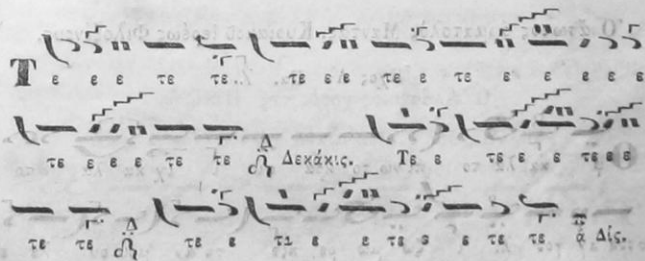 Τ ε ε ε τε τε.. τε ε ε τε ε τε ε ε ε ε ε
τε ε ε ε τε τε Δ Δεκάκις. Τε ε τε ε ε τε ε ε
τε τε Δ τε ε τε ε ε τε ε ε τε τε π ἀ Δίς.